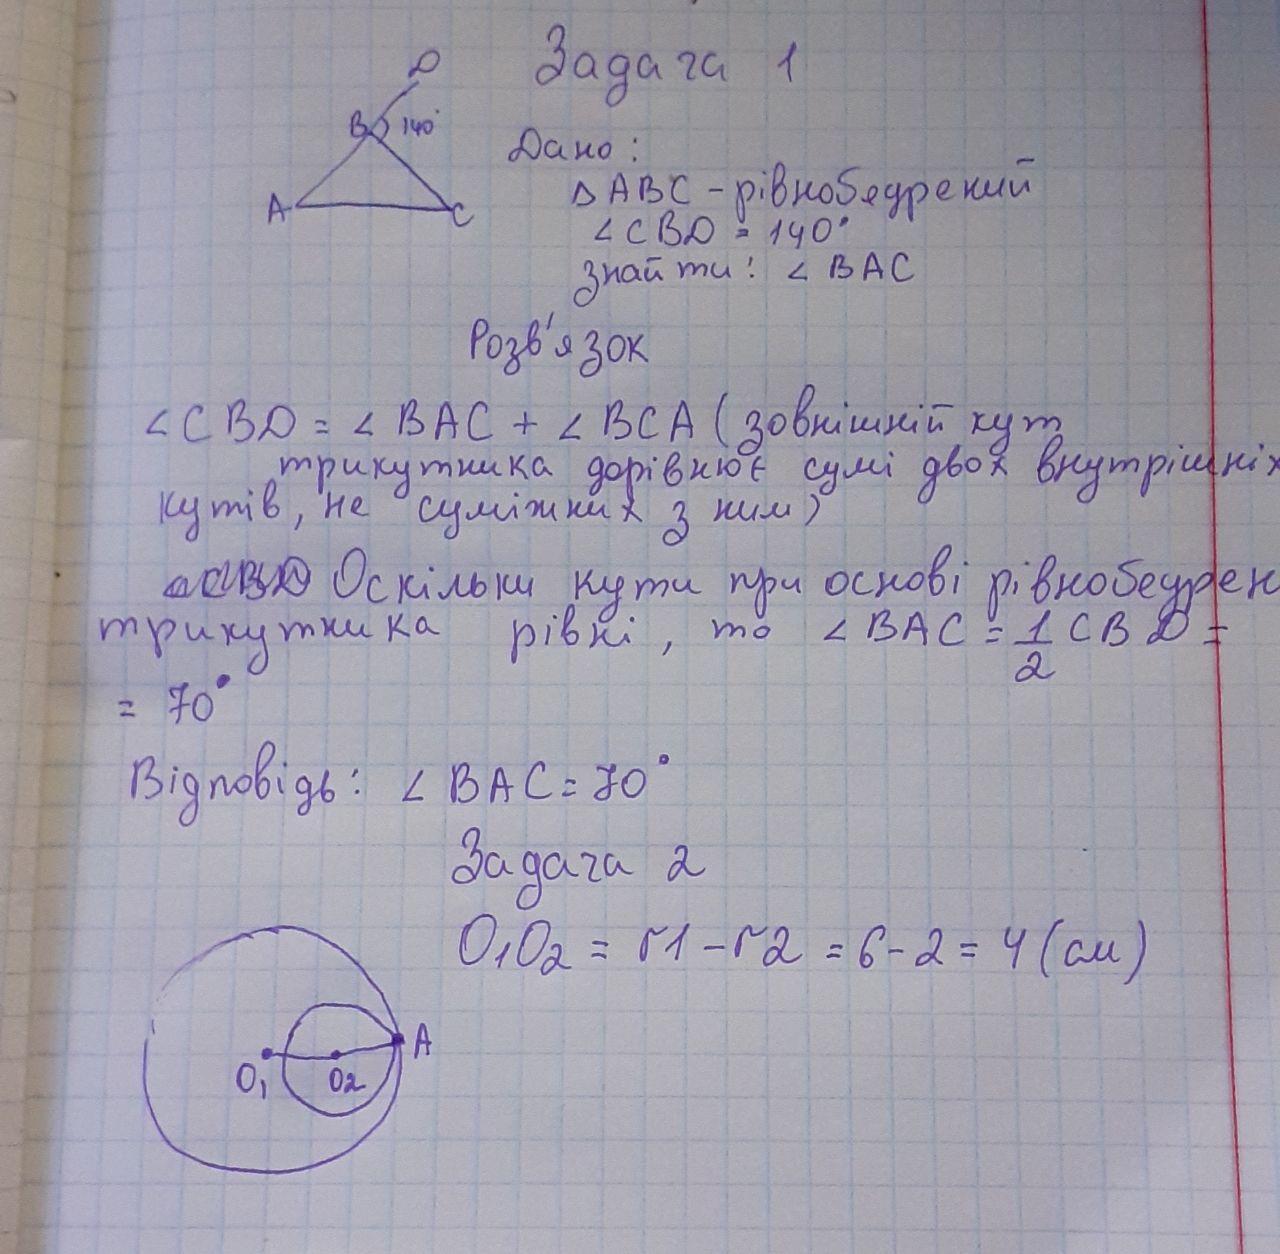 Задача 1
D
B 140°
A
C
Дано:
△ABC - рівнобедрений
∠CBD = 140°
знайти: ∠BAC
Розв'язок
∠CBD = ∠BAC + ∠BCA (зовнішній кут
трикутника дорівнює сумі двох внутрішніх
кутів, не суміжних з ним)
Оскільки кути при основі рівнобедрен
трикутника рівні, то ∠BAC = 1/2 CBD =
= 70°
Відповідь: ∠BAC = 70°
Задача 2
O₁O₂ = r1 - r2 = 6 - 2 = 4 (см)
A
O₁ O₂